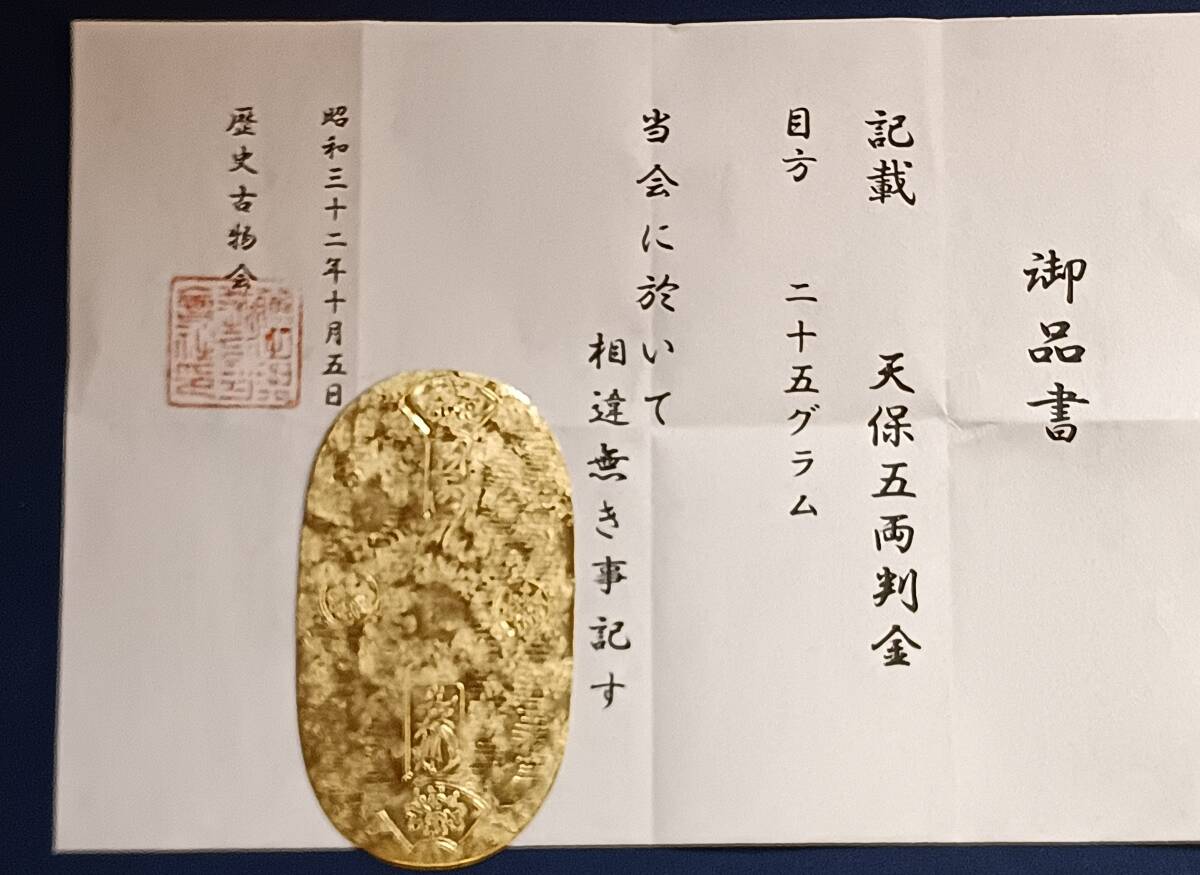 御品書
記載 天保五両判金
目方 二十五グラム
当会に於いて
相違無き事記す
昭和三十二年十月五日
歴史古物会